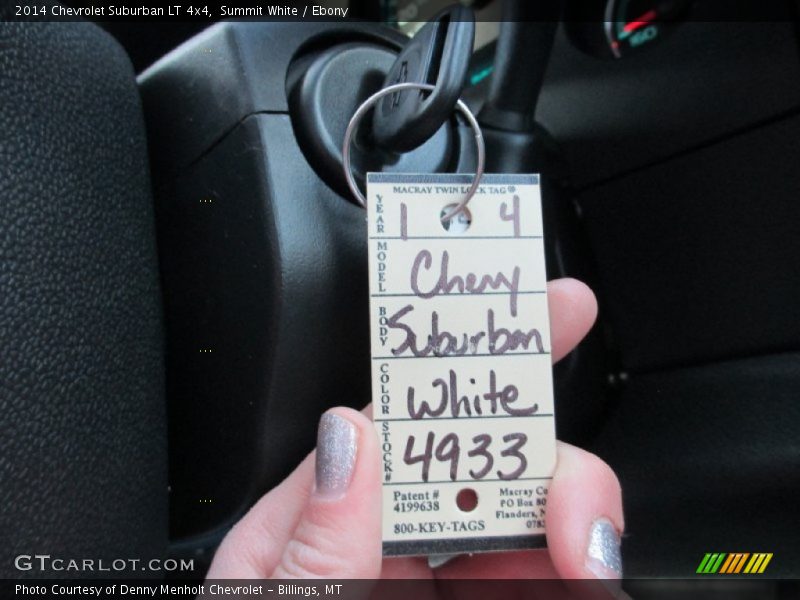 2014 Chevrolet Suburban LT 4x4, Summit White / Ebony
160
MACRAY TWIN LOCK TAG
YEAR 1 4
MODEL Chevy
BODY Suburban
COLOR White
STOCK# 4933
Patent # Macray Co
4199638 PO Box 80
Flanders, N
800-KEY-TAGS 0783
GTCARLOT.COM
Photo Courtesy of Denny Menholt Chevrolet - Billings, MT